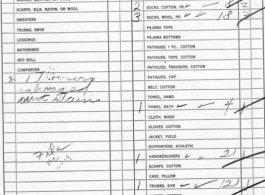 SCARFS, SILK, RAYON, OR WOOL
SWEATERS
TRUNKS, SWIM
LEGGINGS
BATHROBES
BED ROLL
COMFORTER
2 SOCKS, COTTON, PR.
3 SOCKS, WOOL, PR. 18
PAJAMA TOPS
PAJAMA BOTTOMS
FATIGUES, 1 PC. COTTON
FATIGUES, TOPS, COTTON
FATIGUES, TROUSERS, COTTON
FATIGUES, CAP
BELT, COTTON
TOWEL, HAND
1 TOWEL, BATH 4
CLOTH, WASH
GLOVES, COTTON
JACKET, FIELD
SUPPORTERS, ATHLETIC
1 HANDKERCHIEFS 2
SCARFS, COTTON
CASE, PILLOW
1 TRUNKS, GYM 12